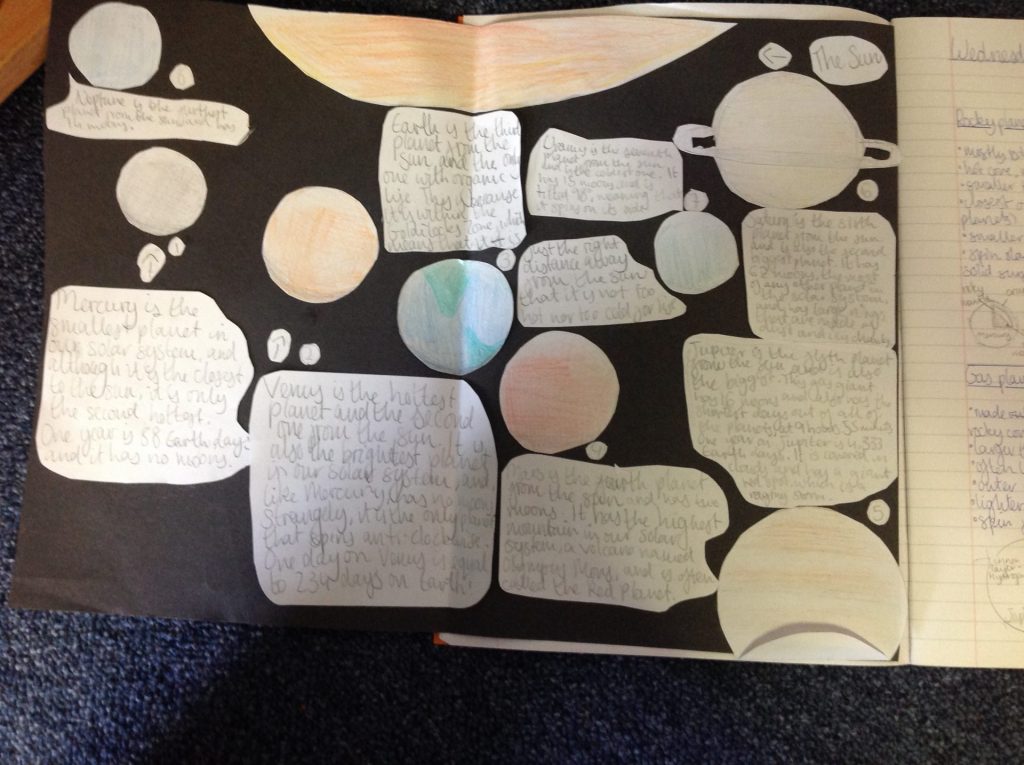 The Sun
Neptune is the furthest
planet from the sun and has
14 moons.
Mercury is the
smallest planet in
our solar system, and
although it is the closest
to the sun, it is only
the second hottest.
One year is 88 Earth days
and it has no moons.
1
Venus is the hottest
planet and the second
one from the sun. It is
also the brightest planet
in our solar system, and
like Mercury, has no moons.
Strangely, it is the only planet
that spins anti-clockwise.
One day on Venus is equal
to 234 days on Earth!
2
Earth is the third
planet from the
sun, and the only
one with organic
life. This is because
it's within the
Goldilocks zone, which
means that it is
3
just the right
distance away
from the sun
that it is not too
hot nor too cold for life.
Mars is the fourth planet
from the sun and has two
moons. It has the highest
mountain in our solar
system, a volcano named
Olympus Mons, and is often
called the Red Planet.
4
Jupiter is the fifth planet
from the sun and is also
the biggest. This gas giant
has 67 moons and also has the
shortest days out of all of
the planets, at 9 hours 55 minutes.
One year on Jupiter is 4,333
Earth days. It is covered in
clouds and has a giant
red spot which is a
raging storm.
5
Saturn is the sixth
planet from the sun
and is also the second
biggest planet. It has
62 moons, the most
of any other planet in
the solar system,
and has large rings
that are made of
dust and ice chunks.
6
is the seventh
planet from the sun
and is the coldest one. It
has 15 moons and is
tilted 98°, meaning that
it spins on its side.
7
8
Wednesd
Rocky plane
mostly
smaller
closest
planets)
smaller
spin slo
solid su
Gas plan
made
rocky co
larger
often
outer
lighter
spin